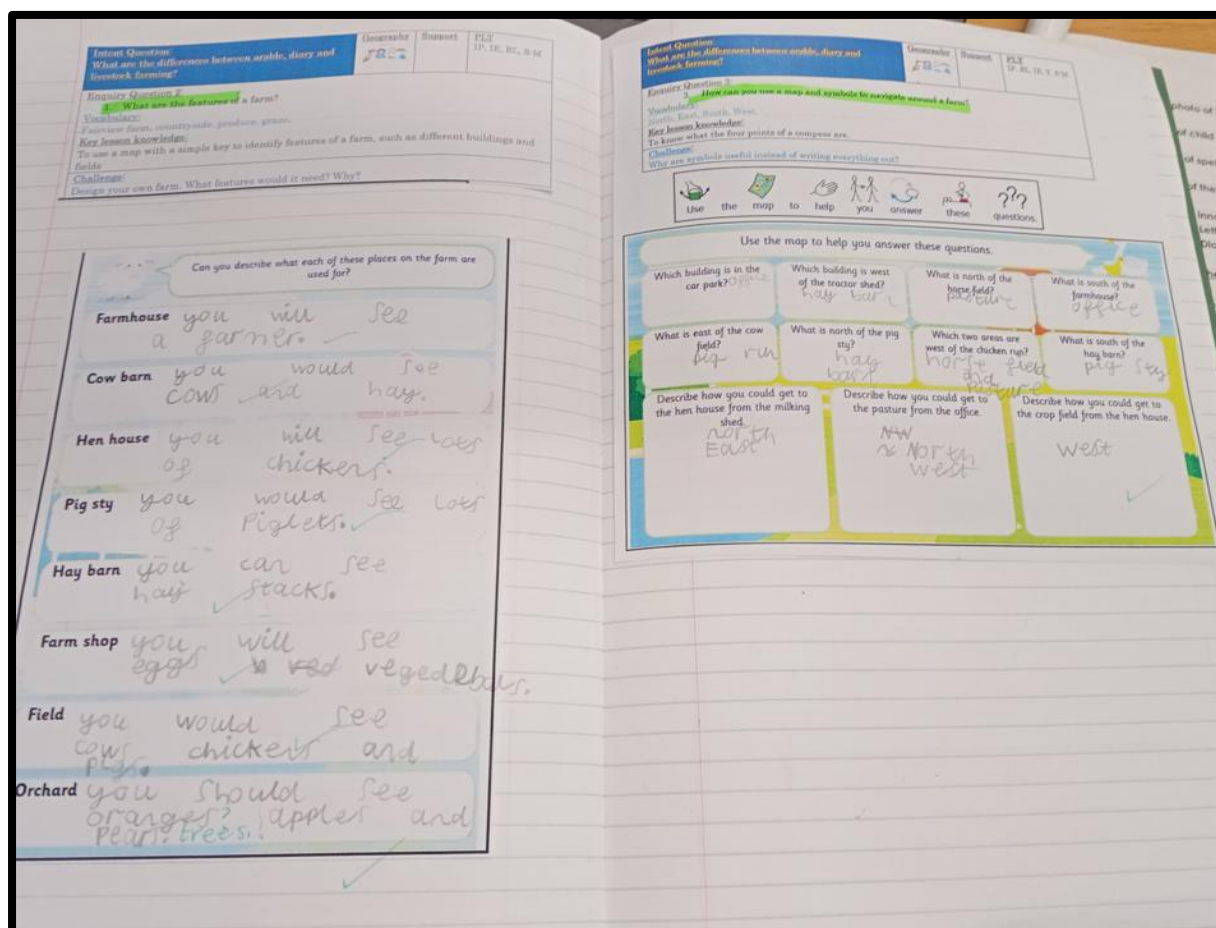 Intent Question:
What are the differences between arable, diary and
livestock farming?
Geography
Support
PLT
IP, IE, RL, S-M
Enquiry Question 2:
1. What are the features of a farm?
Vocabulary:
Fairview farm, countryside, produce, graze.
Key lesson knowledge:
To use a map with a simple key to identify features of a farm, such as different buildings and
fields
Challenge:
Design your own farm. What features would it need? Why?
Can you describe what each of these places on the farm are
used for?
Farmhouse you will see
a farmer.
Cow barn you would see
cows and hay.
Hen house you will see lots
of chickens.
Pig sty you would see lots
of Piglets.
Hay barn you can see
hay stacks.
Farm shop you will see
eggs vegedebals.
Field you would see
cows chickens and
pigs.
Orchard you should see
oranges? apples and
pears. trees.
Intent Question:
What are the differences between arable, diary and
livestock farming?
Geography
Support
PLT
Enquiry Question 2:
How can you use a map and symbols to navigate around a farm?
Vocabulary:
North, East, South, West.
Key lesson knowledge:
To know what the four points of a compass are.
Challenge:
Why are symbols useful instead of writing everything out?
???
Use the map to help you answer these questions.
Use the map to help you answer these questions.
Which building is in the
car park? office
Which building is west
of the tractor shed?
hay barn
What is north of the
horse field?
pasture
What is south of the
farmhouse?
office
What is east of the cow
field?
pig run
What is north of the pig
sty?
hay
barn
Which two areas are
west of the chicken run?
horse field
and
pasture
What is south of the
hay barn?
pig sty
Describe how you could get to
the hen house from the milking
shed.
north
East
Describe how you could get to
the pasture from the office.
NW
North
west
Describe how you could get to
the crop field from the hen house.
west
photo of
of child
of spel
of the